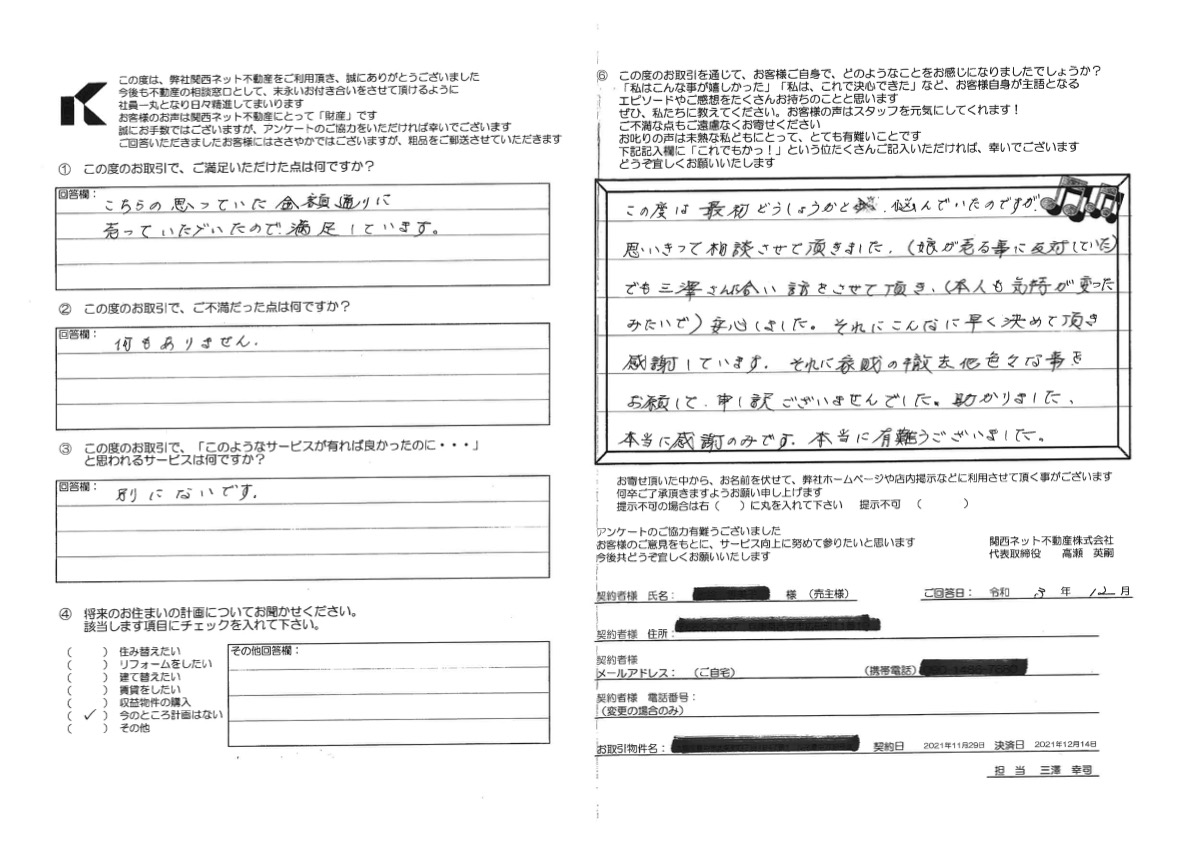 この度は、弊社関西ネット不動産をご利用頂き、誠にありがとうございました
今後も不動産の相談窓口として、末永いお付き合いをさせて頂けるように
社員一丸となり日々精進してまいります
お客様のお声は関西ネット不動産にとって「財産」です
誠にお手数ではございますが、アンケートのご協力をいただければ幸いでございます
ご回答いただきましたお客様にはささやかではございますが、粗品をご郵送させていただきます
① この度のお取引で、ご満足いただけた点は何ですか?
回答欄:
こちらの思っていた金額通りに
売っていただいたので満足しています。
② この度のお取引で、ご不満だった点は何ですか?
回答欄:
何もありません.
③ この度のお取引で、「このようなサービスが有れば良かったのに・・・」
と思われるサービスは何ですか?
回答欄:
別にないです.
④ 将来のお住まいの計画についてお聞かせください。
該当します項目にチェックを入れて下さい。
( ) 住み替えたい
( ) リフォームをしたい
( ) 建て替えたい
( ) 賃貸をしたい
( ) 収益物件の購入
( ✓ ) 今のところ計画はない
( ) その他
その他回答欄:
⑥ この度のお取引を通じて、お客様ご自身で、どのようなことをお感じになりましたでしょうか?
「私はこんな事が嬉しかった」「私は、これで決心できた」など、お客様自身が主語となる
エピソードやご感想をたくさんお持ちのことと思います
ぜひ、私たちに教えてください。お客様の声はスタッフを元気にしてくれます!
ご不満な点もご遠慮なくお寄せください
お叱りの声は未熟な私どもにとって、とても有難いことです
下記記入欄に「これでもかっ!」という位たくさんご記入いただければ、幸いでございます
どうぞ宜しくお願いいたします
この度は最初どうしょうかと、悩んでいたのですが
思いきって相談させて頂きました.(娘が売る事に反対していた)
でも三澤さんに会い話をさせて頂き、(本人も気持が変った
みたいで)安心しました。それにこんなに早く決めて頂き
感謝しています. それに家財の撤去他色々な事を
お願して、申し訳ございませんでした。助かりました、
本当に感謝のみです. 本当に有難うございました。
お寄せ頂いた中から、お名前を伏せて、弊社ホームページや店内掲示などに利用させて頂く事がございます
何卒ご了承頂きますようお願い申し上げます
提示不可の場合は右( )に丸を入れて下さい 提示不可 ( )
アンケートのご協力有難うございました
お客様のご意見をもとに、サービス向上に努めて参りたいと思います
今後共どうぞ宜しくお願いいたします
関西ネット不動産株式会社
代表取締役 高瀬 英嗣
契約者様 氏名: 様 (売主様) ご回答日: 令和 3 年 12 月
契約者様 住所:
契約者様
メールアドレス: (ご自宅) (携帯電話)
契約者様 電話番号:
(変更の場合のみ)
お取引物件名: 契約日 2021年11月29日 決済日 2021年12月14日
担 当 三澤 幸司